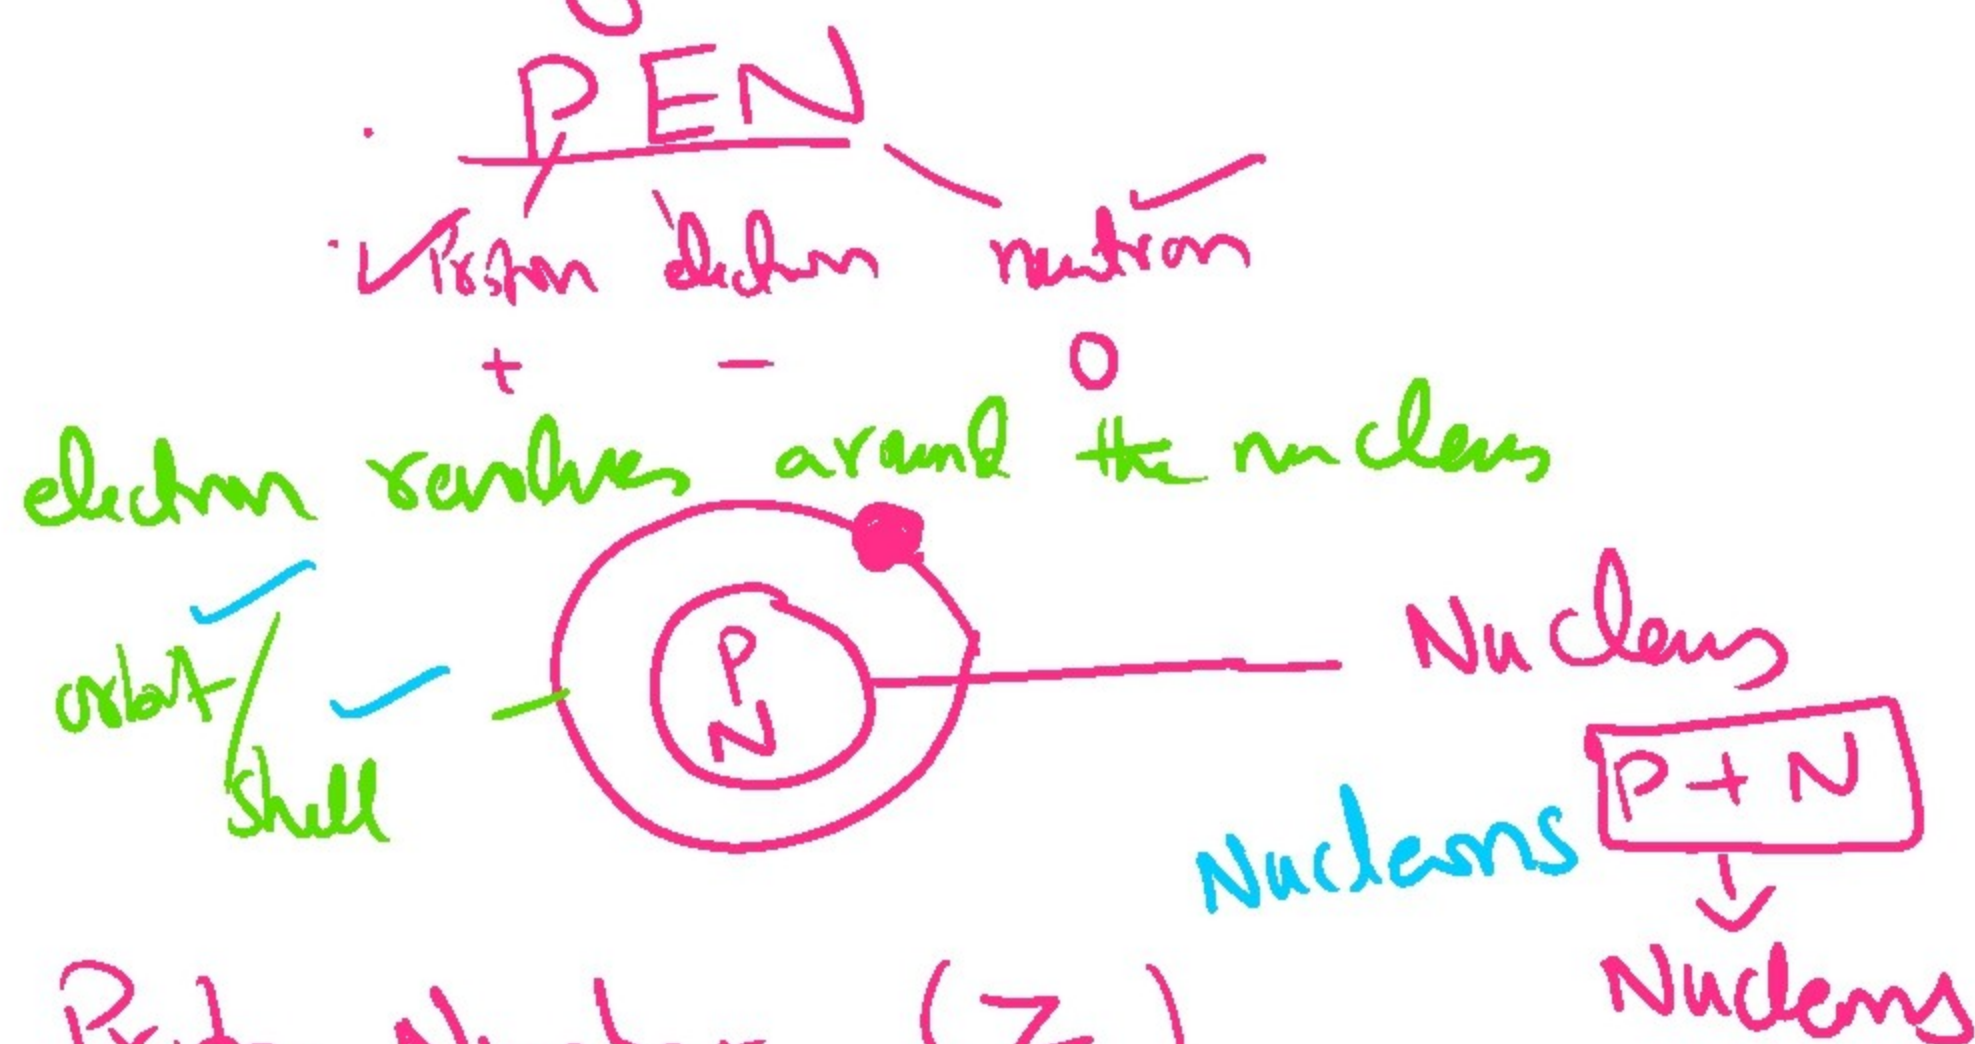 PEN
Proton electron neutron
+ - 0
electron revolves around the nucleus
orbit/
shell
P
N
Nucleus
P+N
Nucleons
Nucleons
Proton Number (Z)